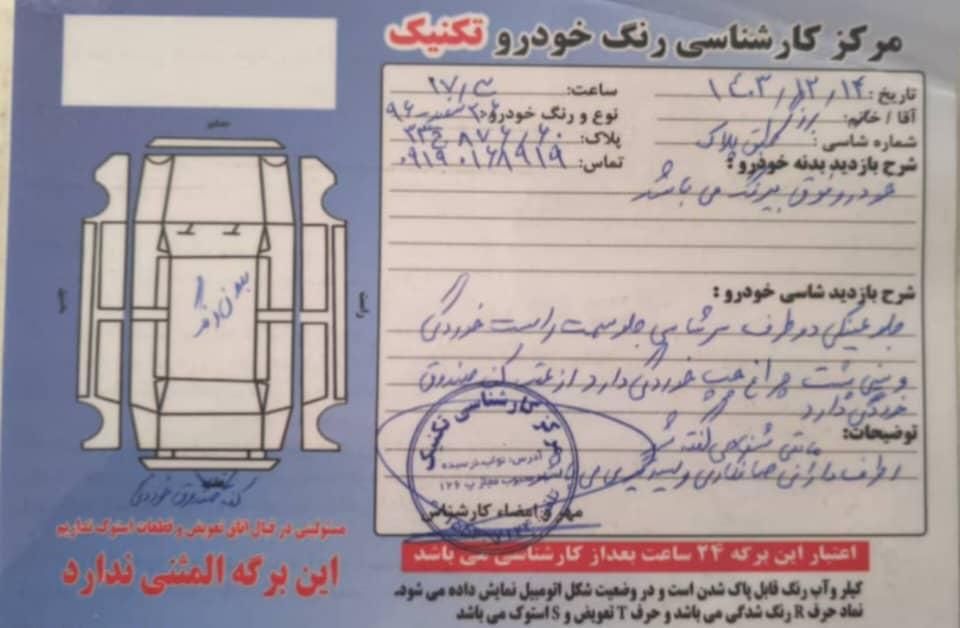 مرکز کارشناسی رنگ خودرو تکنیک
تاریخ: ۱۴۰۳/۱۲/۱۴
ساعت: ۱۷/۳۰
آقا / خانم:
نوع و رنگ خودرو: ۹۶
شماره شاسی: طبق پلاک
پلاک: ۶۰ / ۸۷۶
تماس: ۰۹۱۹۰۱۶۸۹۱۹
شرح بازدید بدنه خودرو:
خودرو فوق بیرنگ می باشد
شرح بازدید شاسی خودرو:
جلو عینکی دو طرف سرشاسی جلو سمت راست خوردگی
و سینی پشت چراغ چپ خوردگی دارد از عقب کف صندوق
خوردگی دارد
توضیحات:
می باشد
مهر و امضاء کارشناس
مرکز کارشناسی تکنیک
آدرس: نواب نرسیده
پ ۱۲۶
بدون رنگ
کف صندوق خوردگی
جلو
عقب
چپ
راست
مسئولیتی در قبال اتاق تعویض و قطعات استوک نداریم
این برگه المثنی ندارد
اعتبار این برگه ۲۴ ساعت بعد از کارشناسی می باشد
کیلر و آب رنگ قابل پاک شدن است و در وضعیت شکل اتومبیل نمایش داده می شود.
نماد حرف R رنگ شدگی می باشد و حرف T تعویض و S استوک می باشد